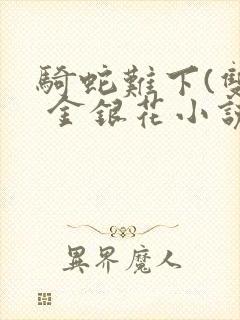 騎蛇難下(雙
金銀花小說
異界魔人